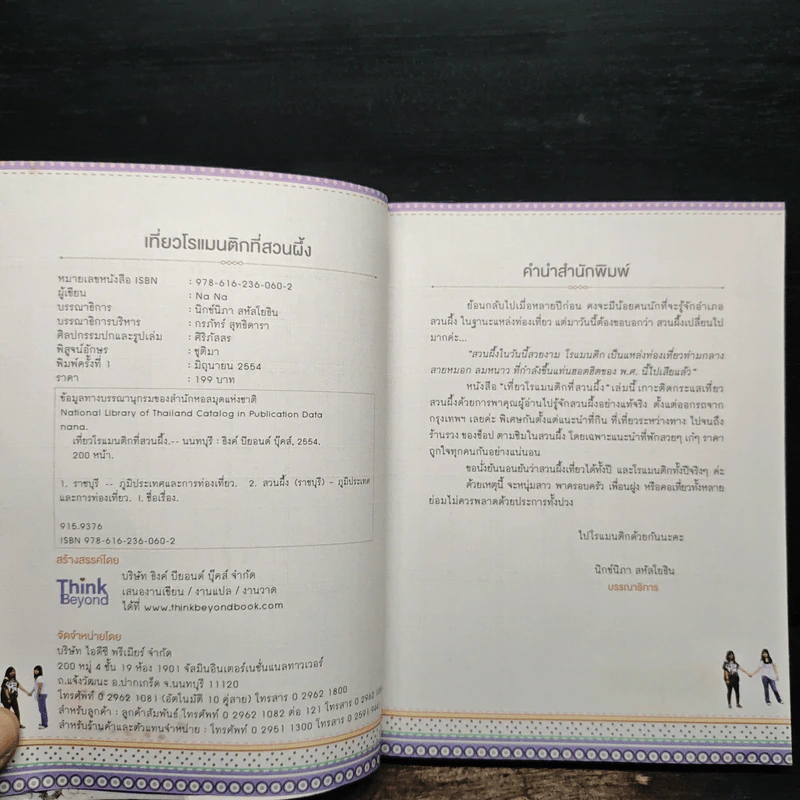 เที่ยวโรแมนติกที่สวนผึ้ง
หมายเลขหนังสือ ISBN : 978-616-236-060-2
ผู้เขียน : Na Na
บรรณาธิการ : นิกข์นิภา สหัสโยธิน
บรรณาธิการบริหาร : กรภัทร์ สุทธิดารา
ศิลปกรรมปกและรูปเล่ม : ศิริภัสสร
พิสูจน์อักษร : ชุติมา
พิมพ์ครั้งที่ 1 : มิถุนายน 2554
ราคา : 199 บาท
ข้อมูลทางบรรณานุกรมของสำนักหอสมุดแห่งชาติ
National Library of Thailand Catalog in Publication Data
nana.
เที่ยวโรแมนติกที่สวนผึ้ง.-- นนทบุรี : ธิงค์ บียอนด์ บุ๊คส์, 2554.
200 หน้า.
1. ราชบุรี -- ภูมิประเทศและการท่องเที่ยว. 2. สวนผึ้ง (ราชบุรี) - ภูมิประเทศ
และการท่องเที่ยว. I. ชื่อเรื่อง.
915.9376
ISBN 978-616-236-060-2
สร้างสรรค์โดย
Think
Beyond
บริษัท ธิงค์ บียอนด์ บุ๊คส์ จำกัด
เสนองานเขียน / งานแปล / งานวาด
ได้ที่ www.thinkbeyondbook.com
จัดจำหน่ายโดย
บริษัท ไอดีซี พรีเมียร์ จำกัด
200 หมู่ 4 ชั้น 19 ห้อง 1901 จัสมินอินเตอร์เนชั่นแนลทาวเวอร์
ถ.แจ้งวัฒนะ อ.ปากเกร็ด จ.นนทบุรี 11120
โทรศัพท์ 0 2962 1081 (อัตโนมัติ 10 คู่สาย) โทรสาร 0 2962 1800
สำหรับลูกค้า : ลูกค้าสัมพันธ์ โทรศัพท์ 0 2962 1082 ต่อ 121 โทรสาร 0 2962
สำหรับร้านค้าและตัวแทนจำหน่าย : โทรศัพท์ 0 2951 1300 โทรสาร 0 2591
คำนำสำนักพิมพ์
ย้อนกลับไปเมื่อหลายปีก่อน คงจะมีน้อยคนนักที่จะรู้จักอำเภอ
สวนผึ้ง ในฐานะแหล่งท่องเที่ยว แต่มาวันนี้ต้องขอบอกว่า สวนผึ้งเปลี่ยนไป
มากค่ะ...
"สวนผึ้งในวันนี้สวยงาม โรแมนติก เป็นแหล่งท่องเที่ยวท่ามกลาง
สายหมอก ลมหนาว ที่กำลังขึ้นแท่นฮอตฮิตของ พ.ศ. นี้ไปเสียแล้ว"
หนังสือ "เที่ยวโรแมนติกที่สวนผึ้ง" เล่มนี้ เกาะติดกระแสเที่ยว
สวนผึ้งด้วยการพาคุณผู้อ่านไปรู้จักสวนผึ้งอย่างแท้จริง ตั้งแต่ออกรถจาก
กรุงเทพฯ เลยค่ะ พิเศษกันตั้งแต่แนะนำที่กิน ที่เที่ยวระหว่างทาง ไปจนถึง
ร้านรวง ของช็อป ตามชิมในสวนผึ้ง โดยเฉพาะแนะนำที่พักสวยๆ เก๋ๆ ราคา
ถูกใจทุกคนกันอย่างแน่นอน
ขอนั่งยันนอนยันว่าสวนผึ้งเที่ยวได้ทั้งปี และโรแมนติกทั้งปีจริงๆ ค่ะ
ด้วยเหตุนี้ จะหนุ่มสาว พาครอบครัว เพื่อนฝูง หรือคอเที่ยวทั้งหลาย
ย่อมไม่ควรพลาดด้วยประการทั้งปวง
ไปโรแมนติกด้วยกันนะคะ
นิกข์นิภา สหัสโยธิน
บรรณาธิการ